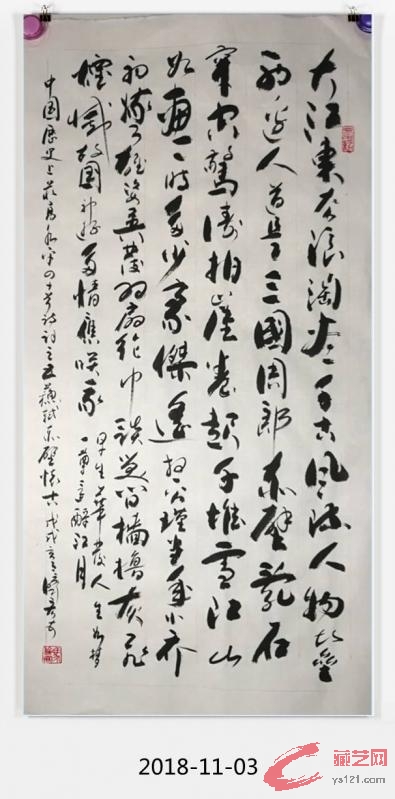 大江東去浪淘盡千古風流人物故壘
西邊人道是三國周郎赤壁亂石
穿空驚濤拍崖卷起千堆雪江山
如畫一時多少豪傑遙想公瑾當年小喬
初嫁了雄姿英發羽扇綸巾談笑间檣櫓灰飛
煙滅故国神遊多情應笑我
早生華發人生如夢
一尊還酹江月
中国歷史上最高水平の十首詩詞之五蘇軾赤壁懷古戊戌
2018-11-03
藏艺网
ys121.com